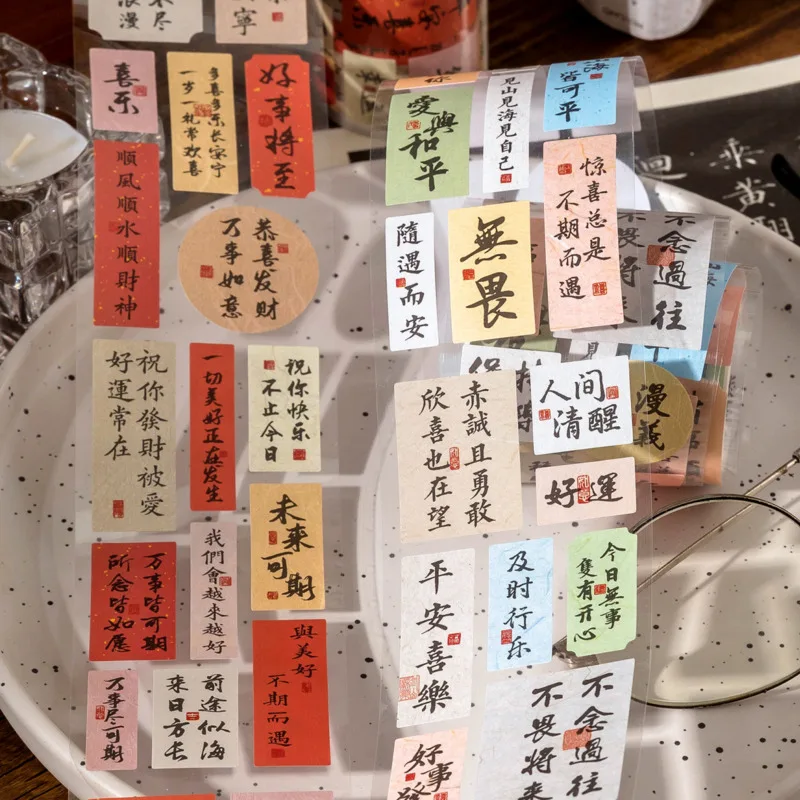 浪漫
不尽
寧
喜乐
多喜多乐长安宁
一岁一礼常欢喜
好事将至
順風順水順財神
恭喜发财
万事如意
祝你發財被愛
好運常在
一切美好正在发生
祝你快乐
不止今日
未来可期
万事皆可期
所念皆如愿
我們會越来越好
與美好
不期而遇
万事尽可期
前途似海
来日方长
愛與
和平
见山见海见自己
海
皆可平
隨遇而安
無畏
惊喜总是
不期而遇
不念過往
不畏将来
赤誠且勇敢
欣喜也在望
人间
清醒
好運
漫
義
平安喜樂
及时行乐
今日無事
隻有开心
好事
不念過往
不畏将来